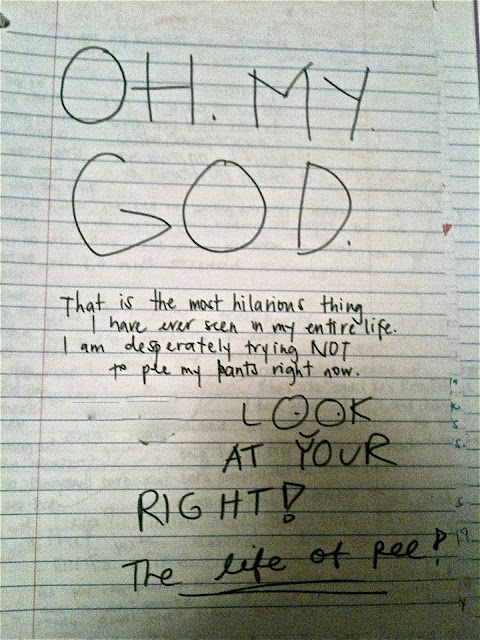 OH. MY.
GOD.
That is the most hilarious thing
I have ever seen in my entire life.
I am desperately trying NOT
to pee my pants right now.
LOOK
AT YOUR
RIGHT!
The life of pee!